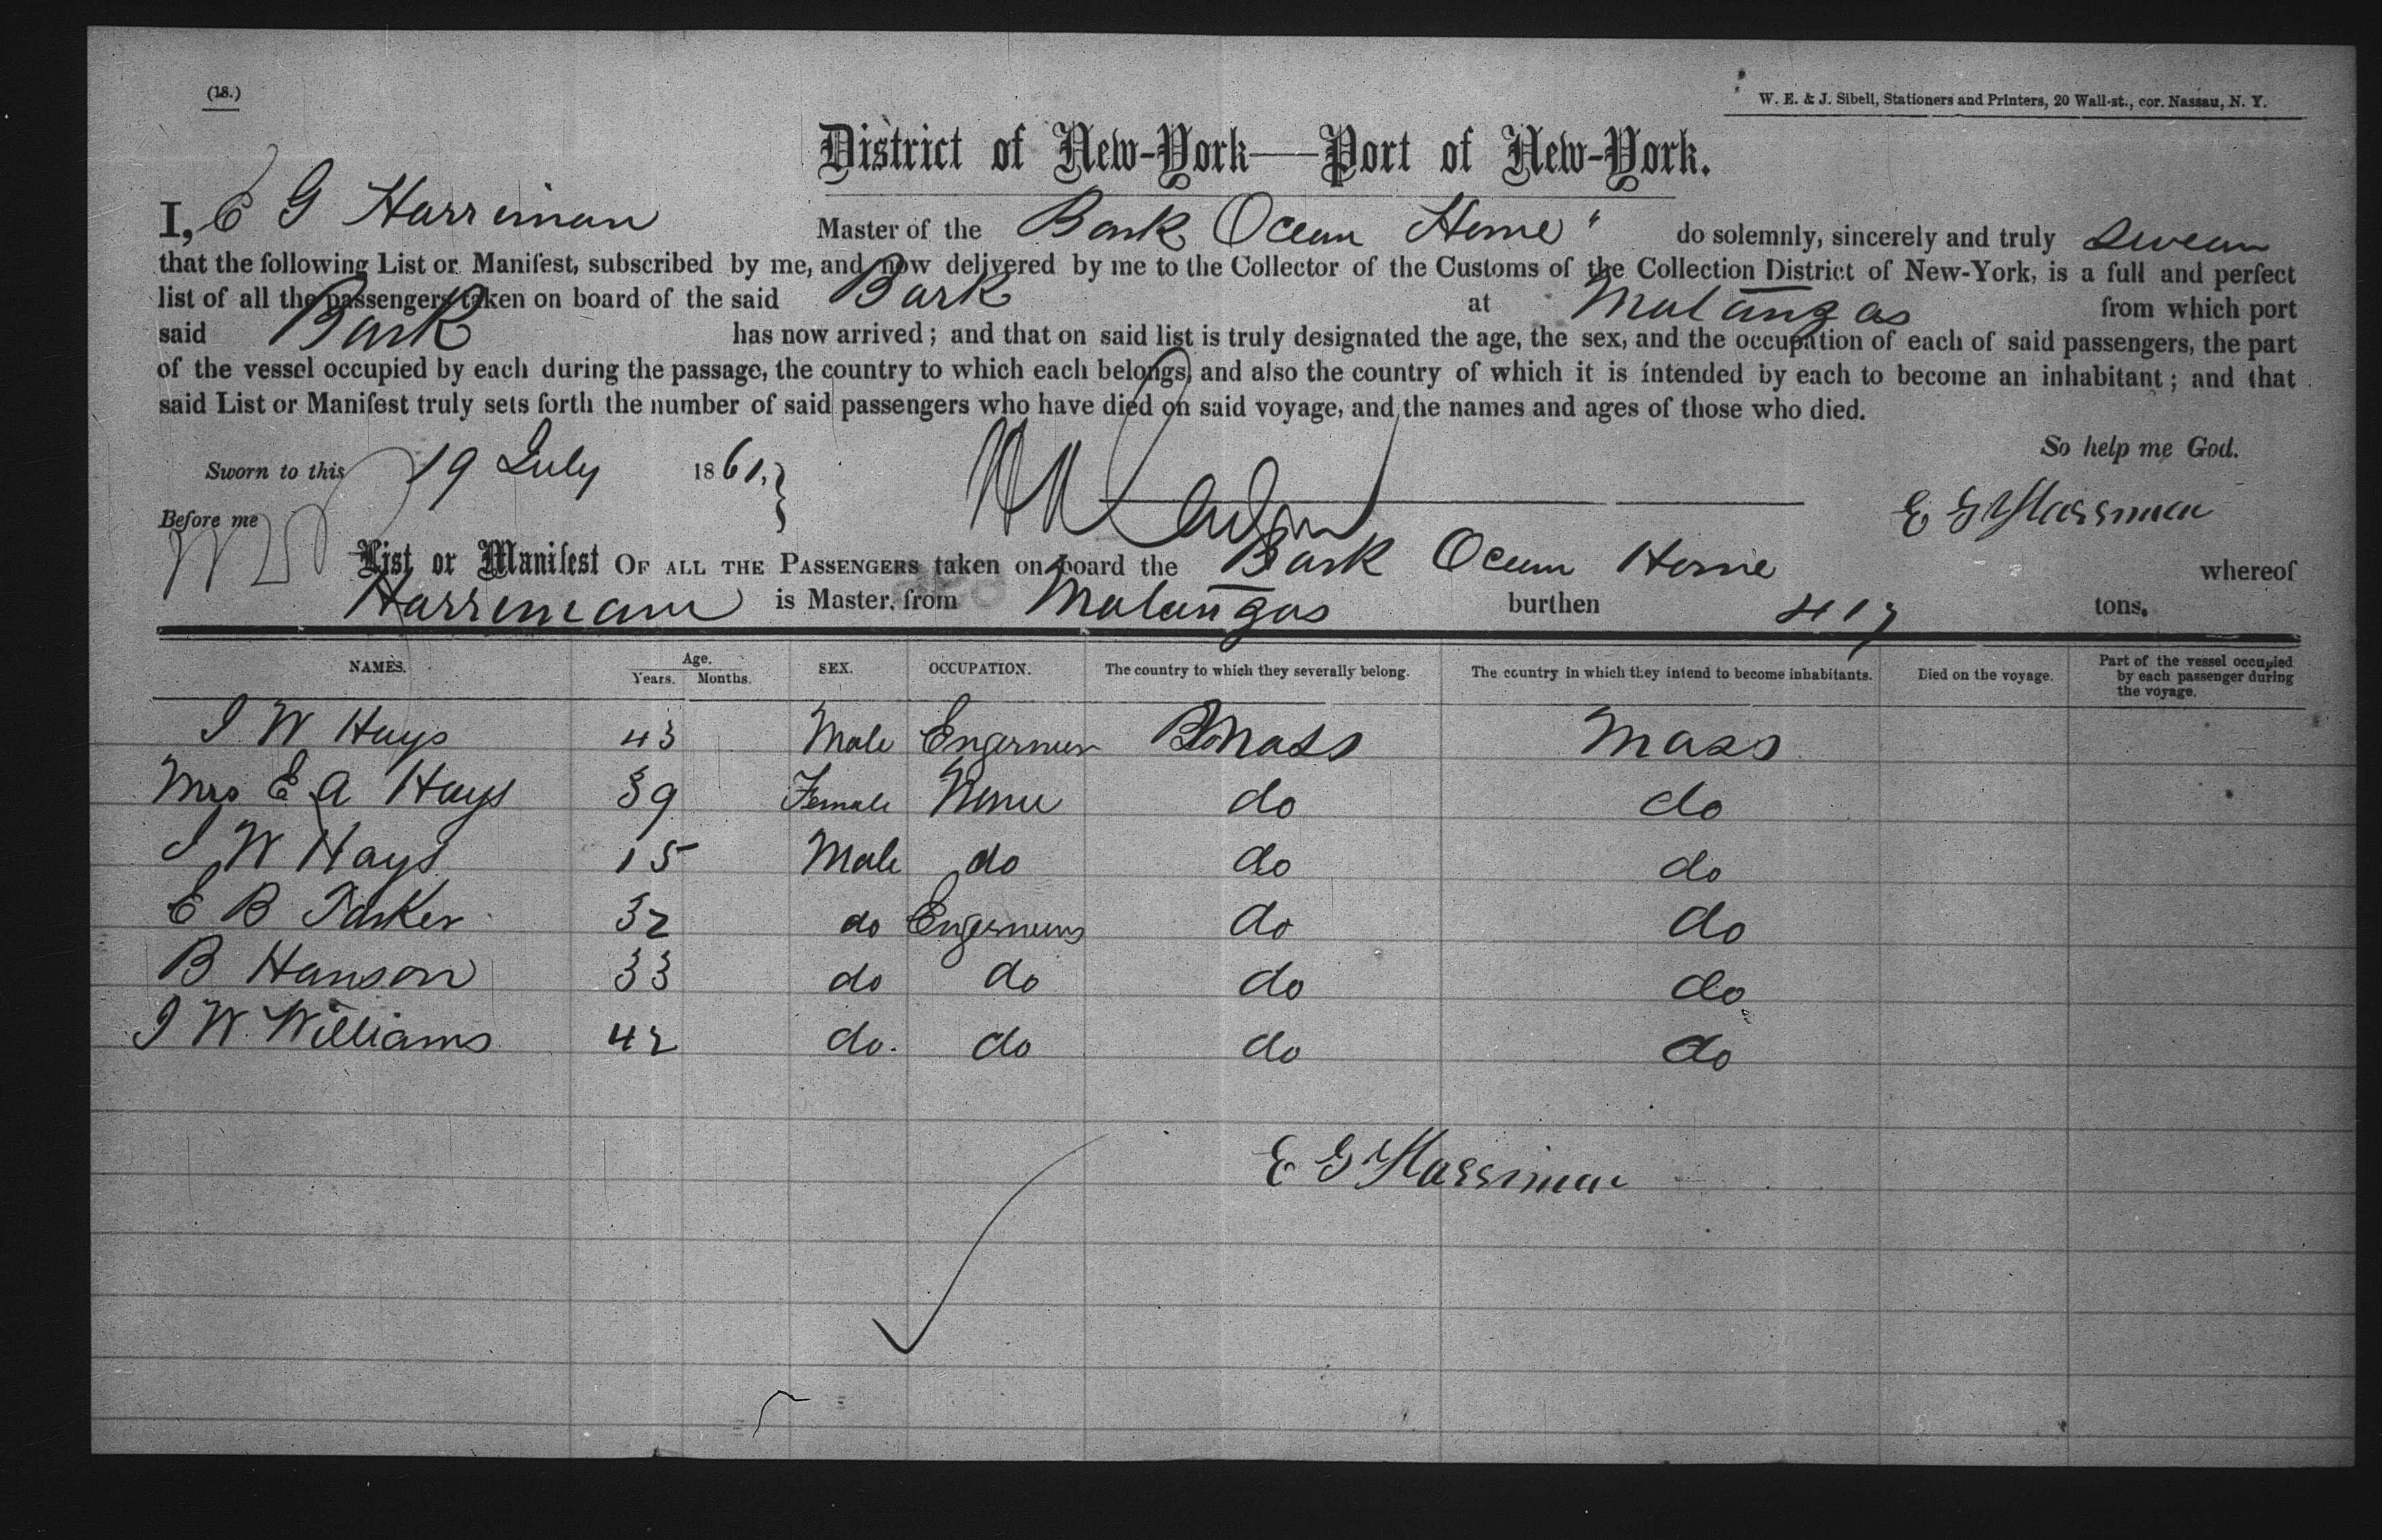 (18.)
W. E. & J. Sibell, Stationers and Printers, 20 Wall-st., cor. Nassau, N. Y.
District of New-York—Port of New-York.
I, E G Harriman Master of the Bark Ocean Home" do solemnly, sincerely and truly swear
that the following List or Manifest, subscribed by me, and now delivered by me to the Collector of the Customs of the Collection District of New-York, is a full and perfect
list of all the passengers taken on board of the said Bark at Matanzas from which port
said Bark has now arrived; and that on said list is truly designated the age, the sex, and the occupation of each of said passengers, the part
of the vessel occupied by each during the passage, the country to which each belongs, and also the country of which it is intended by each to become an inhabitant; and that
said List or Manifest truly sets forth the number of said passengers who have died on said voyage, and the names and ages of those who died.
So help me God.
Sworn to this 19 July 1861.
E G Harriman
Before me
List or Manifest OF ALL THE PASSENGERS taken on board the Bark Ocean Home whereof
Harriman is Master, from Matanzas burthen 417 tons.
NAMES. Age. Years. Months. SEX. OCCUPATION. The country to which they severally belong. The country in which they intend to become inhabitants. Died on the voyage. Part of the vessel occupied by each passenger during the voyage.
J W Hays 43 Male Mass Mass
Mrs E A Hays 39 Female None do do
J W Hays 15 Male do do do
E B Parker 32 do do do
B Hanson 33 do do do do
J W Williams 42 do. do do do
E G Harriman